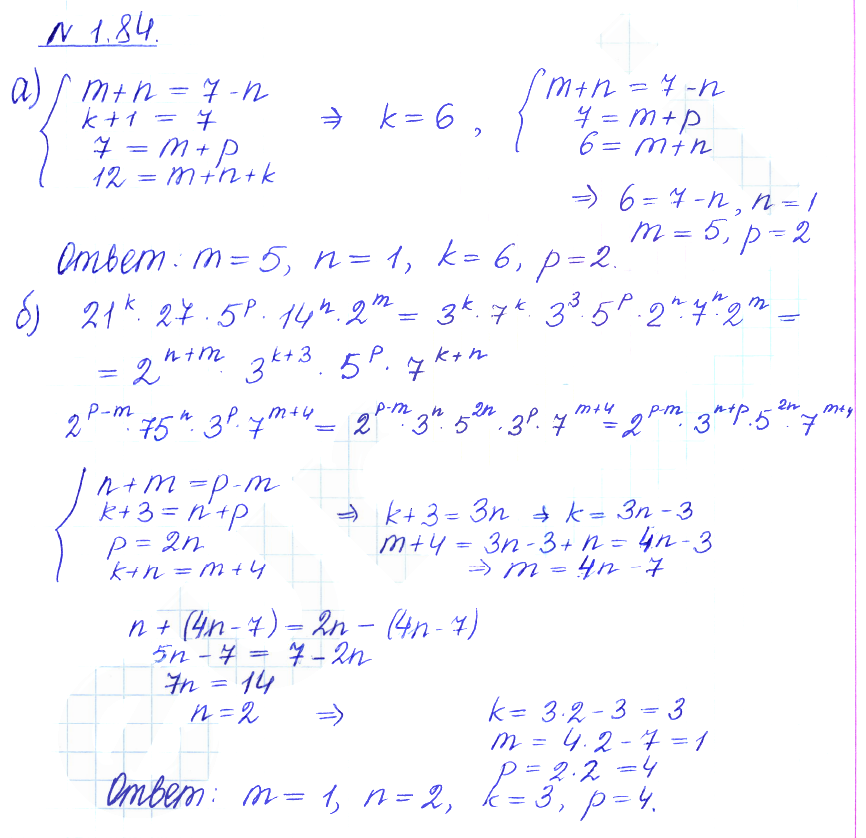 N 1.84.
а) { m+n = 7-n
k+1 = 7 ⇒ k = 6,
7 = m+p
12 = m+n+k
{ m+n = 7-n
7 = m+p
6 = m+n
⇒ 6 = 7-n, n = 1
m = 5, p = 2
Ответ: m = 5, n = 1, k = 6, p = 2.
б) 21^k · 27 · 5^p · 14^n · 2^m = 3^k · 7^k · 3^3 · 5^p · 2^n · 7^n · 2^m =
= 2^{n+m} · 3^{k+3} · 5^p · 7^{k+n}
2^{p-m} · 75^n · 3^p · 7^{m+4} = 2^{p-m} · 3^n · 5^{2n} · 3^p · 7^{m+4} = 2^{p-m} · 3^{n+p} · 5^{2n} · 7^{m+4}
{ n+m = p-m
k+3 = n+p ⇒ k+3 = 3n ⇒ k = 3n-3
p = 2n m+4 = 3n-3+n = 4n-3
k+n = m+4 ⇒ m = 4n-7
n + (4n-7) = 2n - (4n-7)
5n-7 = 7-2n
7n = 14
n = 2 ⇒ k = 3·2-3 = 3
m = 4·2-7 = 1
p = 2·2 = 4
Ответ: m = 1, n = 2, k = 3, p = 4.